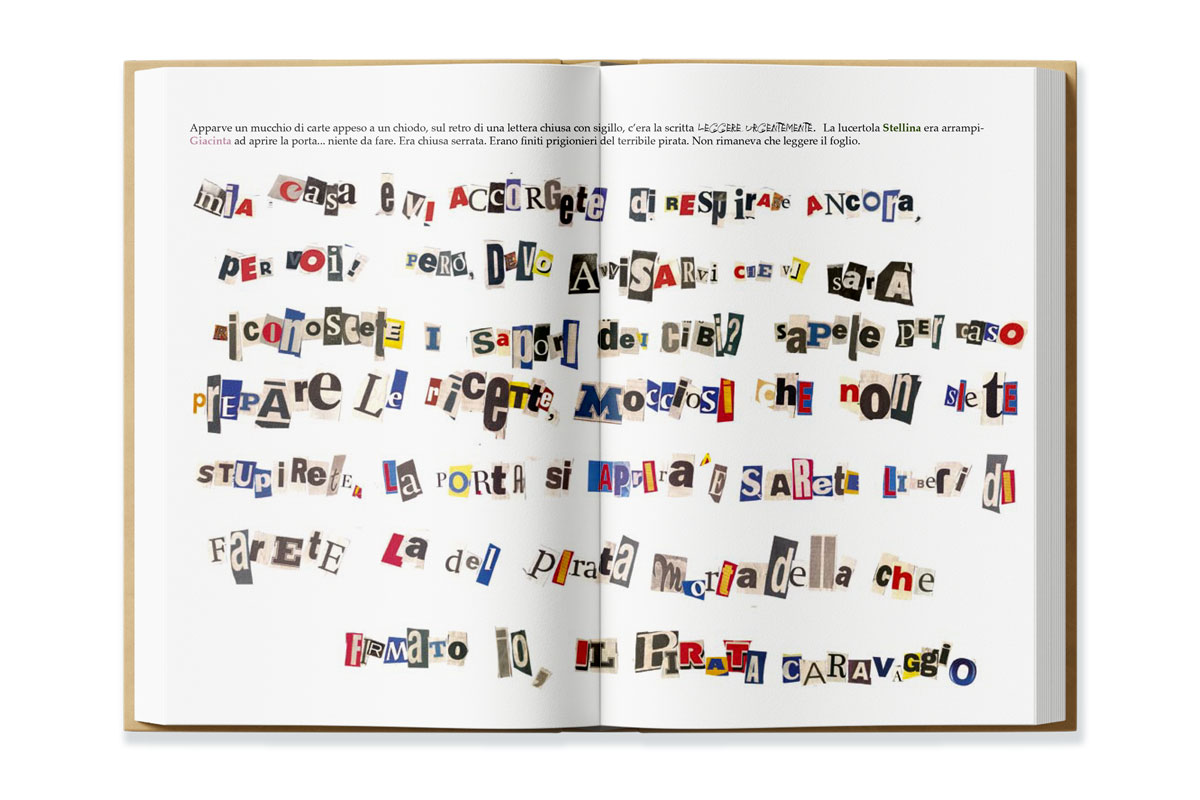 Apparve un mucchio di carte appeso a un chiodo, sul retro di una lettera chiusa con sigillo, c'era la scritta LEGGERE URGENTEMENTE. La lucertola Stellina era arrampi-
Giacinta ad aprire la porta... niente da fare. Era chiusa serrata. Erano finiti prigionieri del terribile pirata. Non rimaneva che leggere il foglio.
miA casa è vi ACCORGete di RESpiraRe ANcora,
pER VOi! pERÒ, DeVo AvviSARvi CHE vi sarÀ
Riconoscete I SapoRI dei CiBi? sapete PER caso
prEPARe Le ricette, Mocciosi cHE non siete
sTUpiRete, La PORtA si Aprirà E SARete LiBeri di
FarEtE La del pIrata mortadella che
FiRMaTO io, IL PIRATA CARAVAggiO